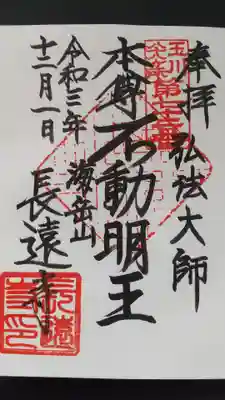 奉拝 弘法大師
玉川八十八ヶ所 第七十三番
本尊 不動明王
海岳山
長遠寺
令和三年
十二月一日